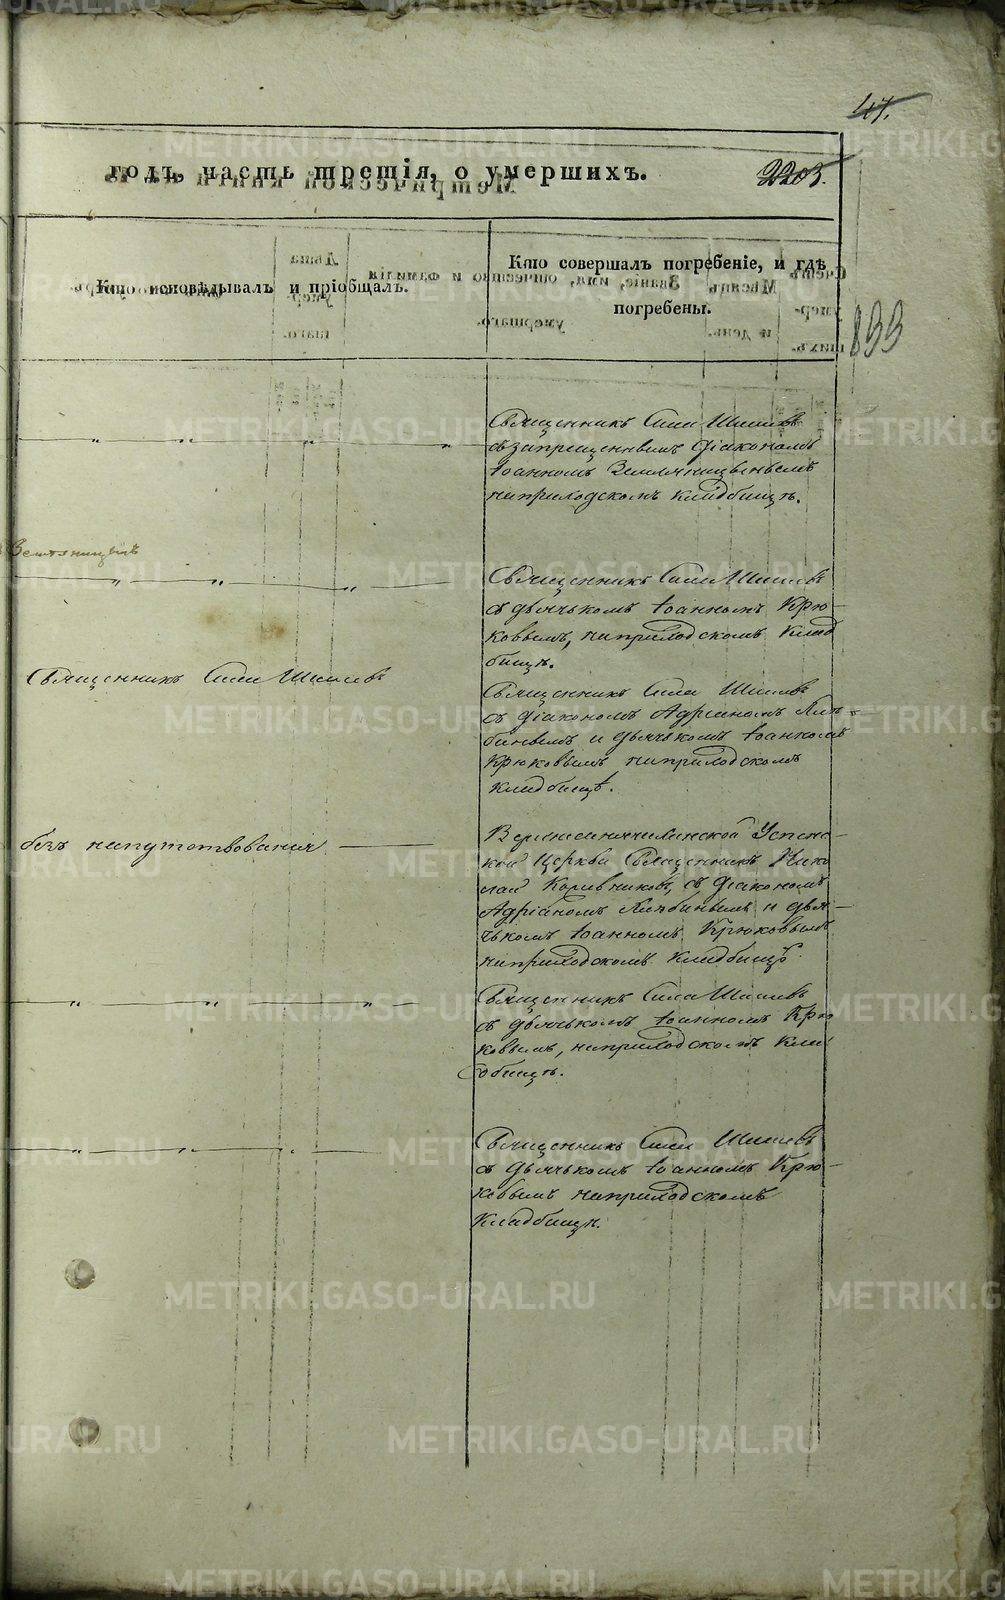 47.
годъ, часть третія, о умершихъ.
2203.
Кто исповѣдывалъ и пріобщалъ.
Кто совершалъ погребеніе, и гдѣ
погребены.
Священникъ Сила Шишевъ
съ запрещеннымъ Діакономъ
Іоанномъ Земляницынымъ
на приходскомъ кладбищѣ.
Земляницынъ
Священникъ Сила Шишевъ
съ дьячькомъ Іоанномъ Крю-
ковымъ, на приходскомъ клад
бищѣ.
Священникъ Сила Шишевъ
Священникъ Сила Шишевъ
съ Діакономъ Адріаномъ
и дьячькомъ Іоанномъ
Крюковымъ на приходскомъ
кладбищѣ.
безъ напутствованія
Успенс-
кой Церкви Священникъ Нико
лай съ Діакономъ
Адріаномъ и дья-
чькомъ Іоанномъ Крюковымъ
на приходскомъ кладбищѣ.
Священникъ Сила Шишевъ
съ дьячькомъ Іоанномъ Крю
ковымъ, на приходскомъ кла
дбищѣ.
Священникъ Сила Шишевъ
съ дьячькомъ Іоанномъ Крю-
ковымъ на приходскомъ
кладбищѣ.
METRIKI.GASO-URAL.RU